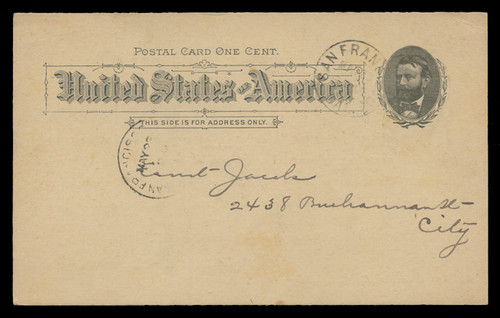 POSTAL CARD ONE CENT.
United States of America
THIS SIDE IS FOR ADDRESS ONLY.
SAN FRAN
SAN FR NCISCO
MAY 26
Jacobs
2438 Buchannan St-
City